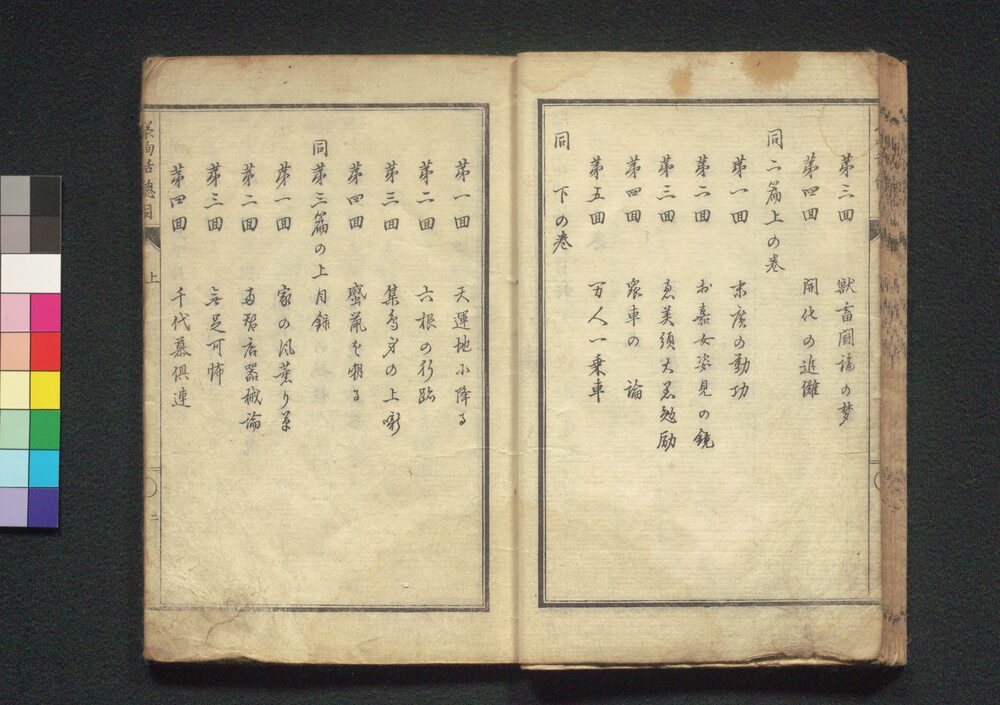 第三回　獣畜闘論の夢
第四回　開化の追儺
同二篇上の巻
第一回　末広の勤功
第二回　お嘉女姿見の鏡
第三回　恵美須大黒勉励
第四回　衆車の論
第五回　万人一乗車
同　下の巻
第一回　天運地小降る
第二回　六根の行踏
第三回　集鳥身の上噺
第四回
同第三篇の上目録
第一回　家の風薫り草
第二回　両替店器械論
第三回　無足可怖
第四回　千代慕倶連
上
二